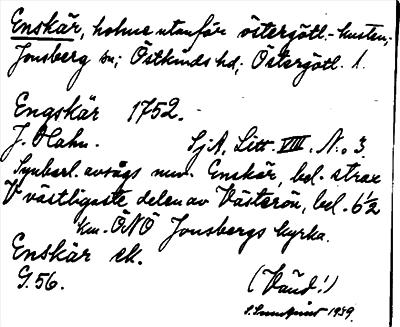 Enskär, holme utanför östergötl.-kusten;
Jonsberg sn; Östkinds hd; Östergötl. l.
Engskär 1752.
J. Olahn. SjA. Litt. VIII. N:o 3
Synbarl. avsågs nuv. Enskär, bel. strax
V västligaste delen av Västerön, bel. 6 1/2
km. ÖNÖ Jonsbergs kyrka.
Enskär ek.
G. 56. (Vänd!)
S. Sundqvist 1939.